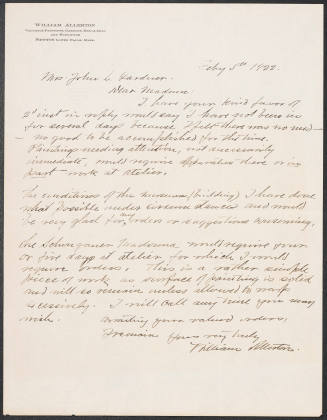 WILLIAM ALLERTON
Feby 5th 1922.
Mrs. John L. Gardner.
Dear Madame:
I have your kind favor of
2d inst in reply would say I have not been in
for several days because I felt there was no need —
no good to be accomplished for this time.
Paintings needing attention, not necessarily
immediate, would require operation there or in
part — work at atelier.
The conditions of the museum (building) I have done
what possible under circumstances and would
be very glad for any orders or suggestions concerning.
The Madonna would require four
or five days at atelier, for which I would
require orders. This is a rather simple
piece of work as surface of painting is solid
and will so remain unless allowed to warp
excessively. I will call any time you may
wish.
Awaiting your valued orders,
I remain Yours very truly,
William Allerton.